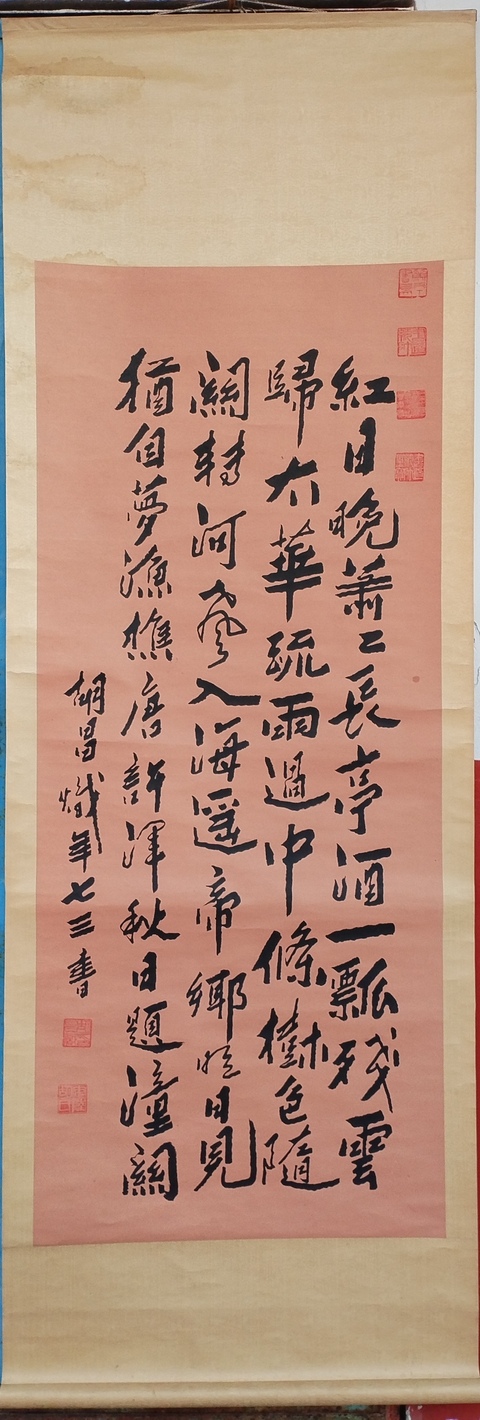 紅日晚蕭〻長亭酒一瓢殘雲
歸太華疏雨過中條樹色隨
關轉河聲入海遥帝鄉明日見
猶自夢漁樵唐許渾秋日題潼關
胡昌熾年七三書